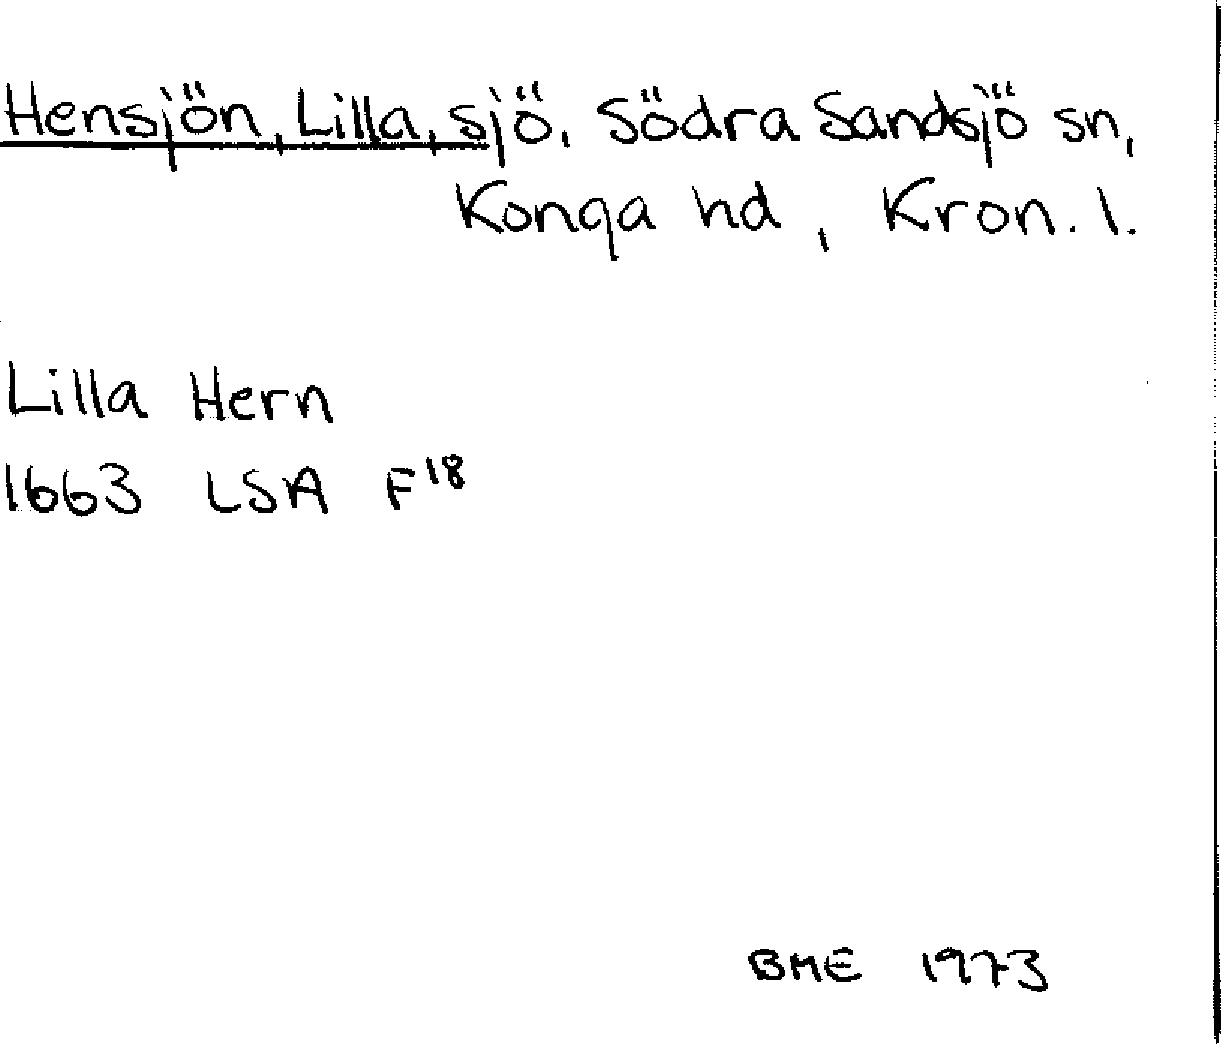 Hensjön, Lilla, sjö, Södra Sandsjö sn,
Konga hd, Kron. l.
Lilla Hern
1663 LSA F18
BME 1973